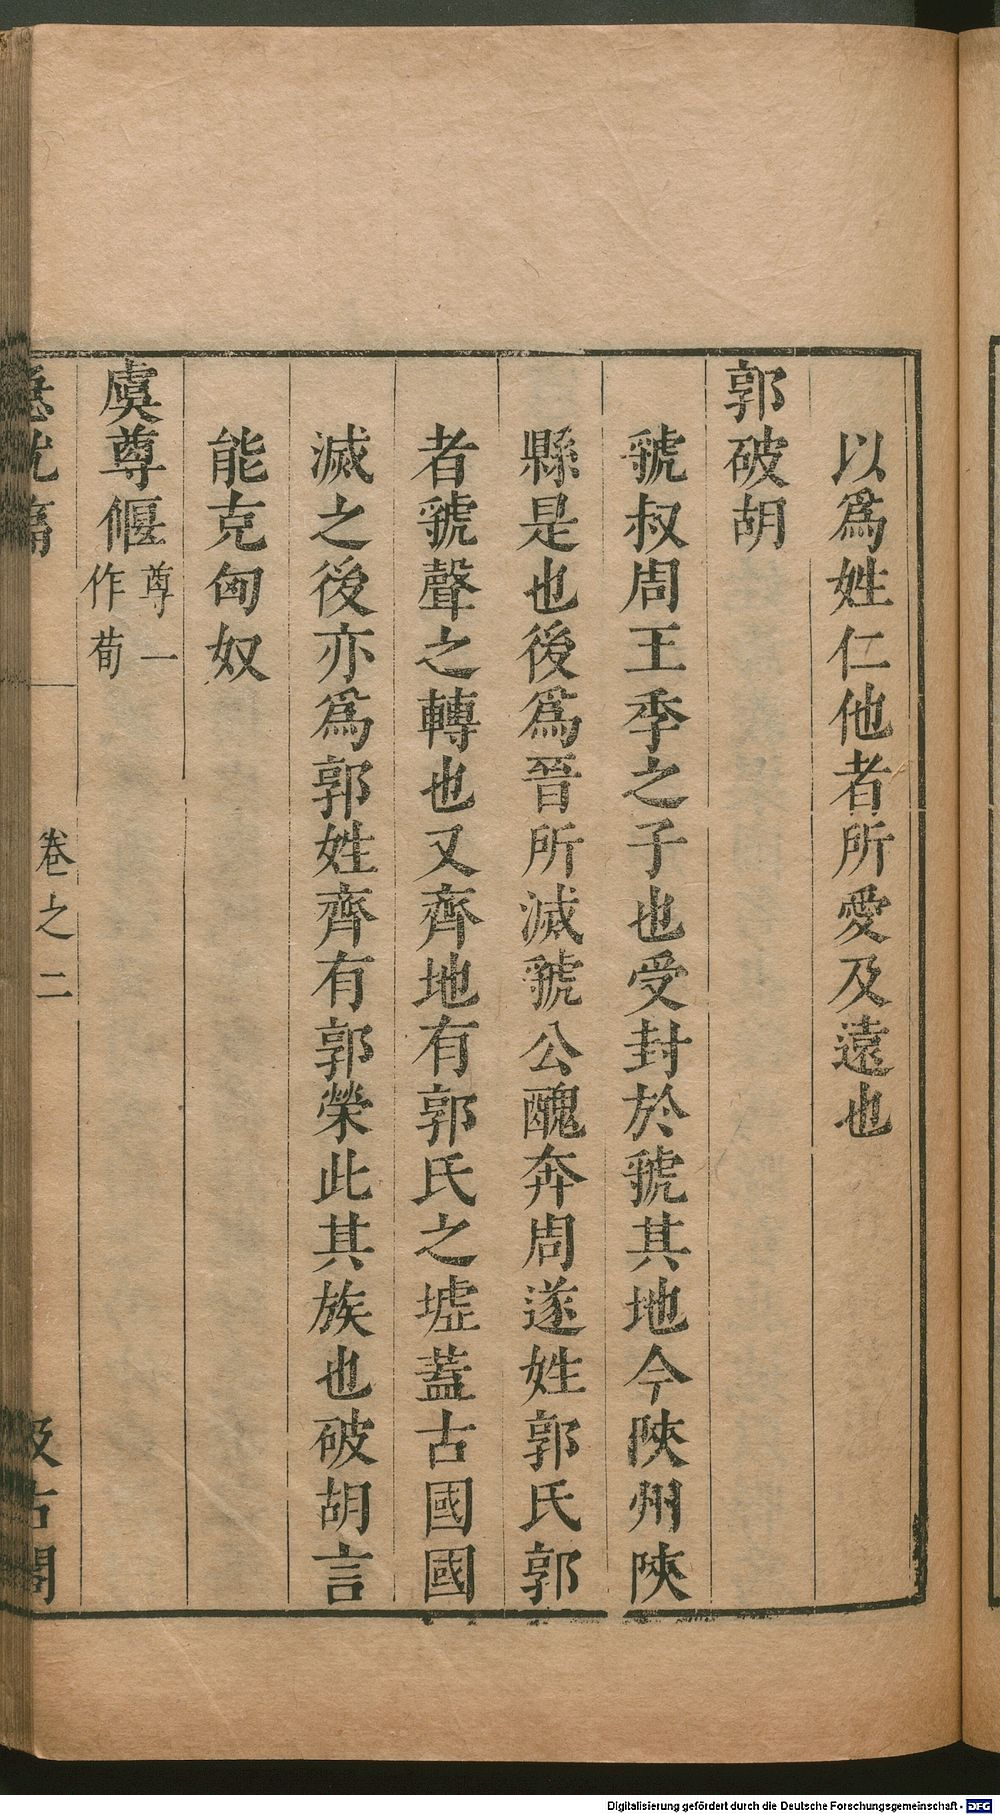 以爲姓仁他者所愛及遠也
郭破胡
虢叔周王季之子也受封於虢其地今陜州陜
縣是也後爲晉所滅虢公醜奔周遂姓郭氏郭
者虢聲之轉也又齊地有郭氏之墟蓋古國國
滅之後亦爲郭姓齊有郭榮此其族也破胡言
能克匈奴
虞尊偃
尊一
作荀
急就篇
卷之二
汲古閣
Digitalisierung gefördert durch die Deutsche Forschungsgemeinschaft - DFG